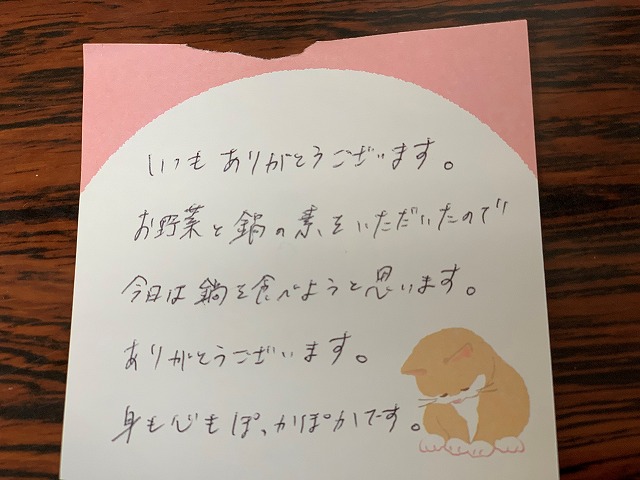 いつもありがとうございます。
お野菜と鍋の素をいただいたので
今日は鍋を食べようと思います。
ありがとうございます。
身も心もぽっかぽかです。